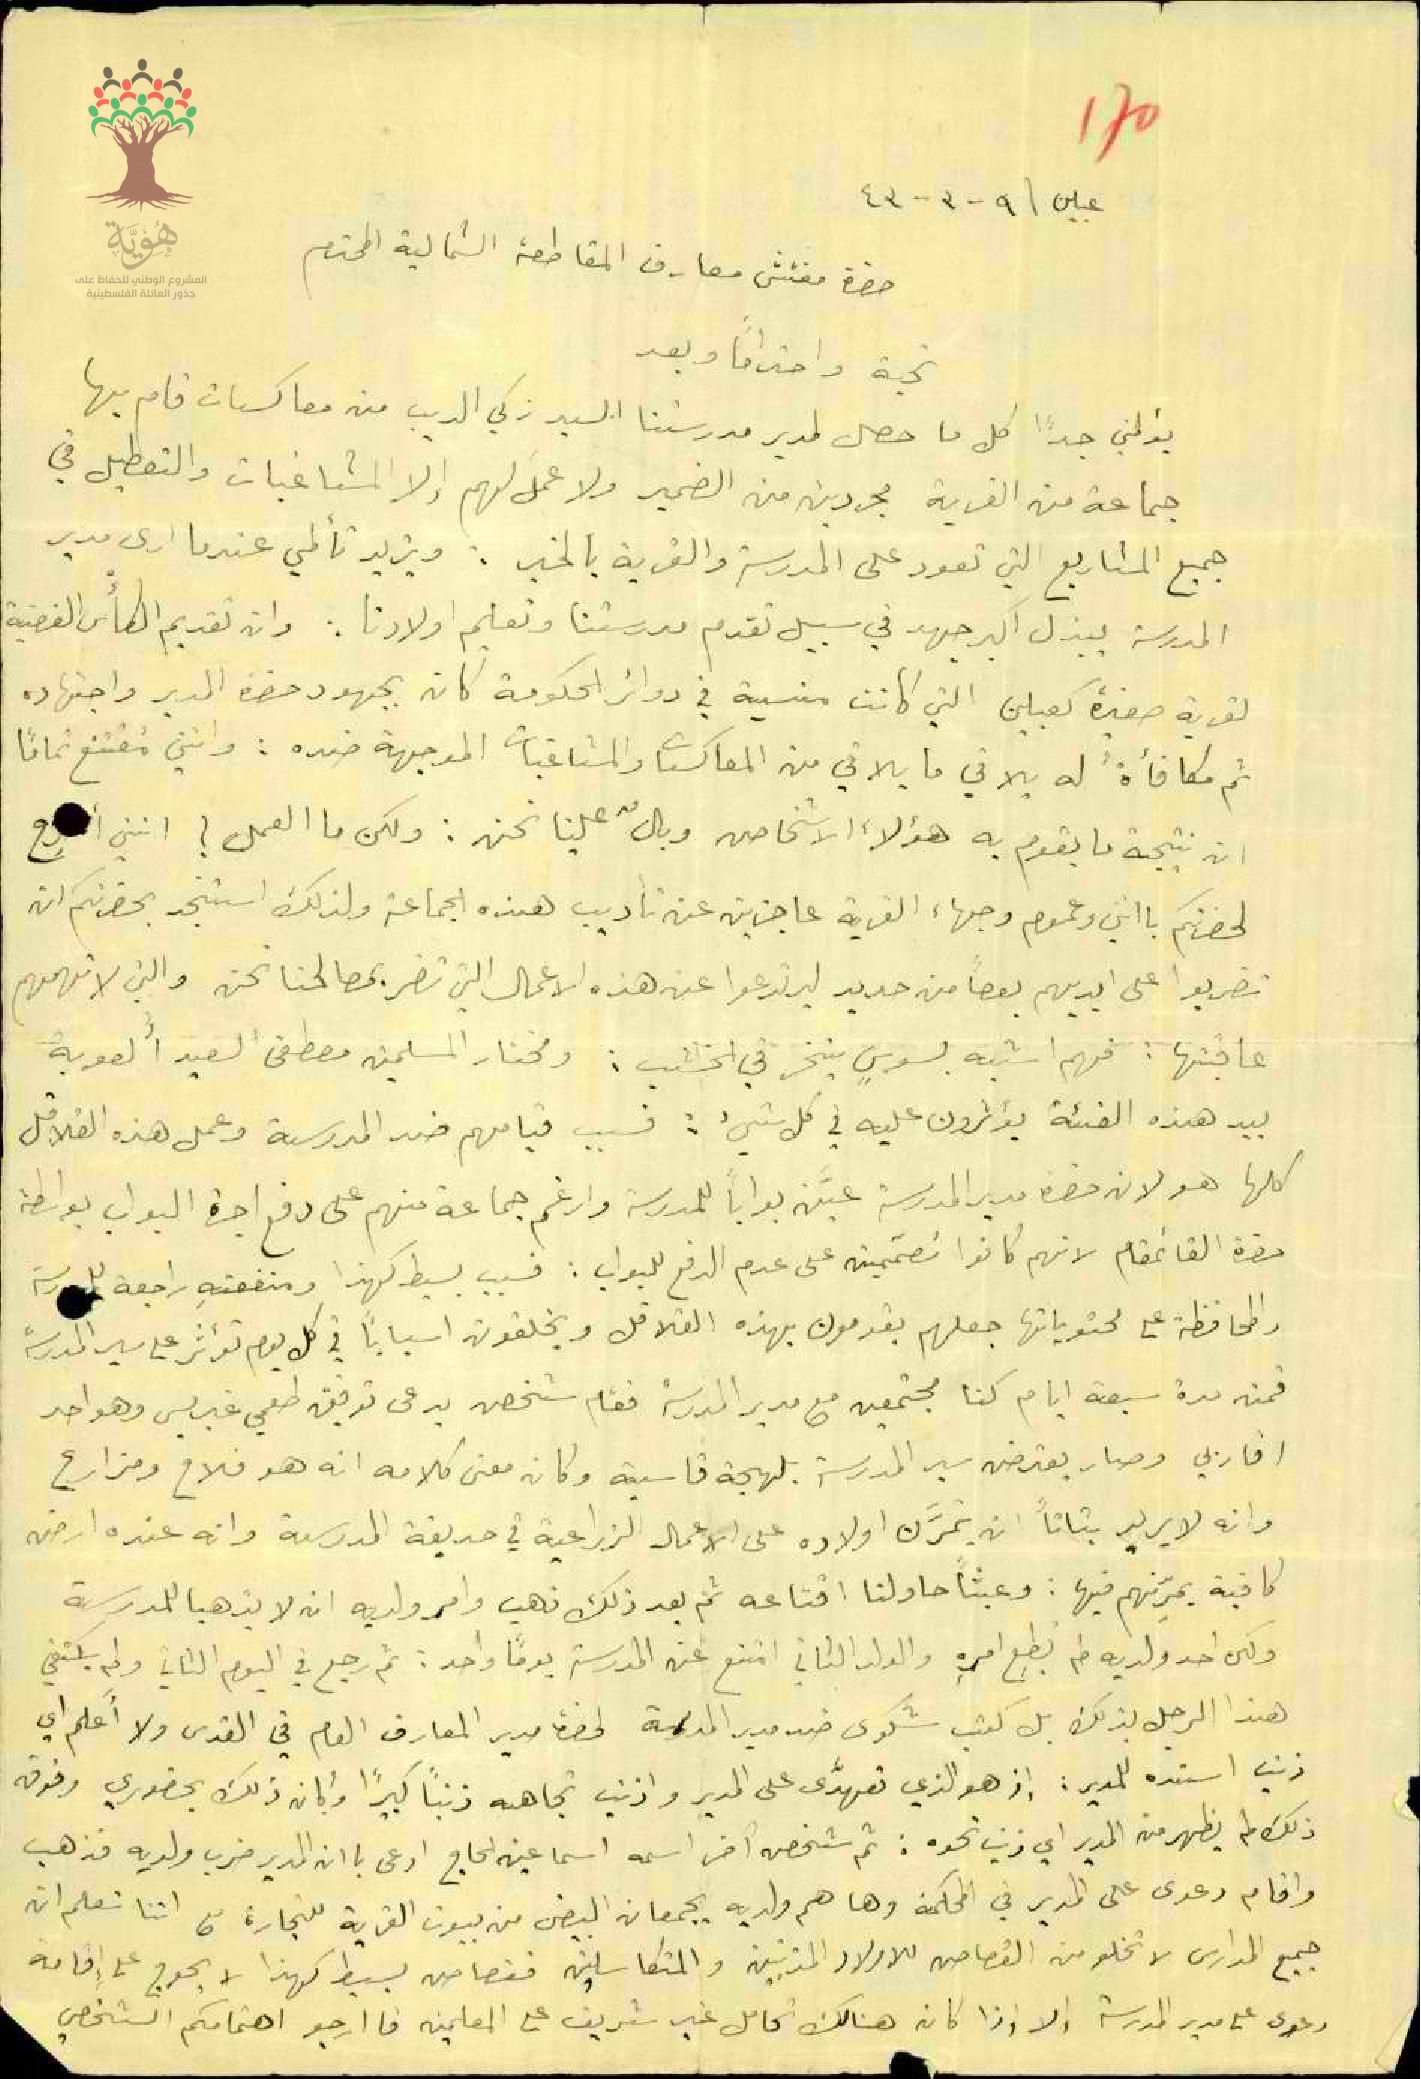 ١٧٥
عبلين ٩ - ٣ - ٤٣
هُوِيَّة
المشروع الوطني للحفاظ على
جذور العائلة الفلسطينية
حضرة مفتش معارف المقاطعة الشمالية المحترم
تحية واحترامًا وبعد
يؤلمني جدًا كل ما حصل لمدير مدرستنا السيد زكي الديب من معاكسات قام بها
جماعة من القرية مجردين من الضمير ولا عمل لهم إلا المشاغبات والتعطيل في
جميع المشاريع التي تعود على المدرسة والقرية بالخير : ويزيد تألمي عندما ارى مدير
المدرسة يبذل اكبر جهد في سبيل تقدم مدرستنا وتعليم اولادنا : وان تقديم الكأس الفضية
لقرية صغيرة كعبلين التي كانت منسية في دوائر الحكومة كان بجهود حضرة المدير واجتهاده
ثم مكافأةً له يلاقي ما يلاقي من المعاكسات والمشاغبات الموجهة ضده : وانني مقتنع تمامًا
ان نتيجة ما يقوم به هؤلاء الاشخاص وبالٌ علينا نحن : ولكن ما العمل ؟ انني
لحضرتكم باانني وعموم وجهاء القرية عاجزين عن تأديب هذه الجماعة ولذلك استنجد بحضرتكم ان
تضربوا على ايديهم بعصاً من حديد ليرتدعوا عن هذه الاعمال التي تضر بمصالحنا نحن والتي لا تهمهم
عاقبتها : فهم اشبه بسوسٍ ينخر في الخشب : ومختار المسلمين مصطفى السعيد ألعوبة
بيد هذه الفئة يؤثرون عليه في كل شيء : فسبب قيامهم ضد المدرسة وعمل هذه القلاقل
كلها هو لان حضرة مدير المدرسة عيَّن بواباً للمدرسة وارغم جماعة منهم على دفع اجرة البواب بواسطة
حضرة القائمقام لانهم كانوا مُصمّمين على عدم الدفع للبواب : فسبب بسيط كهذا ومنفعتهِ راجعة للمدرسة
والمحافظة على محتوياتها جعلهم يقومون بهذه القلاقل ويخلقون اسباباً في كل يوم تؤثر على سير المدرسة
فمن مدة سبعة ايام كنا مجتمعين مع مدير المدرسة فقام شخص يدعى توفيق وهو احد
اقاربي وصار يعترض سير المدرسة بلهجة قاسية وكان معنى كلامه انه هو فلاح ومزارع
وانه لا يريد بتاتاً ان يتمرَّن اولاده على الاعمال الزراعية في حديقة المدرسة وانه عنده ارض
كافية يمرّنهم فيها : وعبثاً حاولنا اقناعه ثم بعد ذلك ذهب وامر ولديه ان لا يذهبا للمدرسة
ولكن احد ولديه لم يُطِع امرهِ والولد الثاني امتنع عن المدرسة يومًا واحد : ثم رجع في اليوم الثاني ولم يكتفي
هذا الرجل بذلك بل كتب شكوى ضد مدير المدرسة لحضرة مدير المعارف العام في القدس ولا أعلم اي
ذنب اسنده للمدير : إذ هو الذي تعدَّى على المدير واذنب تجاهه ذنباً كبيرًا وكان ذلك بحضوري وفوق
ذلك لم يظهر من المدير اي ذنب نحوه : ثم شخص آخر اسمه اسماعين الحاج ادعى باان المدير ضرب ولديه فذهب
واقام دعوى على المدير في المحكمة وها هم ولديه يجمعان البيض من بيوت القرية للتجارة مع اننا نعلم ان
جميع المدارس لا تخلو من القصاص للاولاد المذنبين والمتكاسلين فقصاص بسيط كهذا لا يحوج على إقامة
دعوى على مدير المدرسة إلا إذا كان هنالك تحامل غير شريف على المعلمين فاارجو اهتمامكم الشخصي